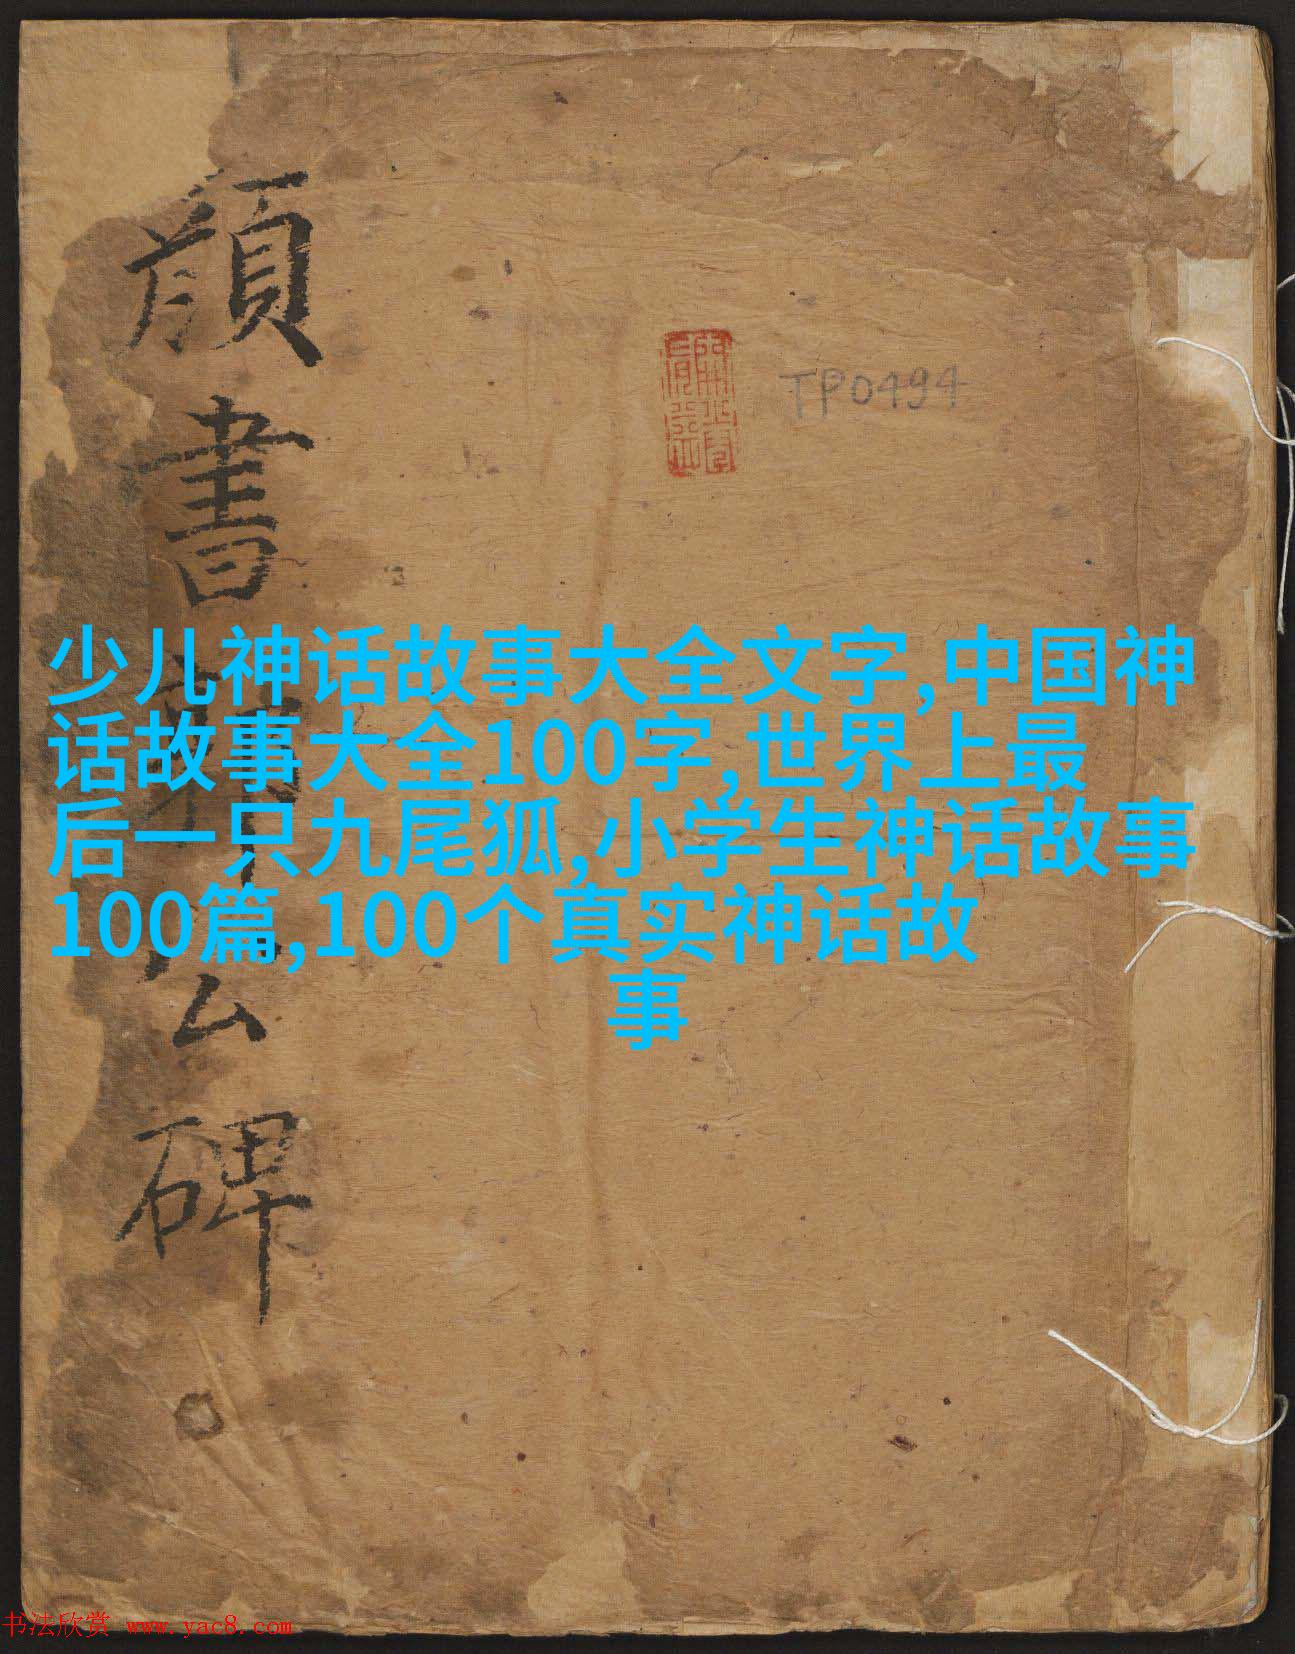 顏書郭公碑
TP0494
少儿神话故事大全文字,中国神
话故事大全100字,世界上最
后一只九尾狐,小学生神话故事
100篇,100个真实神话故
事
书法欣赏 www.yac8.com